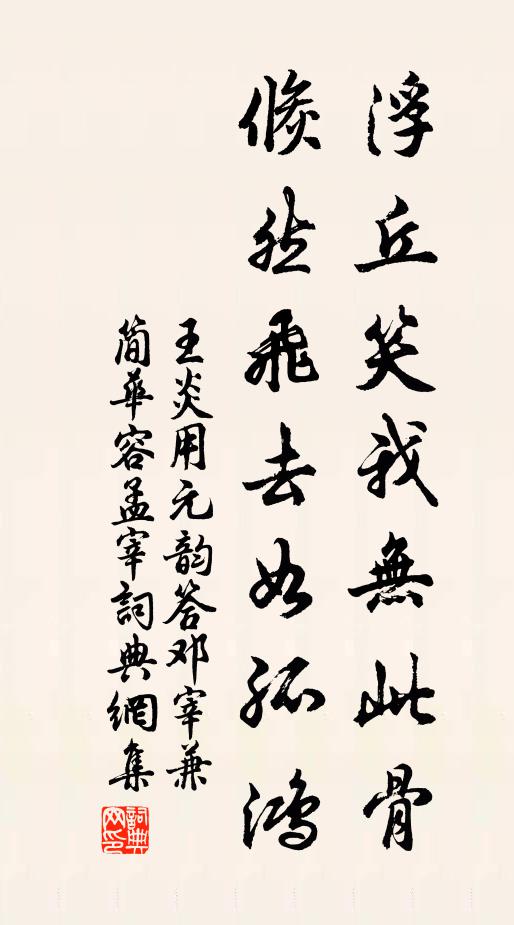 浮丘笑我無此骨
倏然飛去如孤鴻
王炎用元韵答邓宰兼
简華容孟宰詞典網集
詞典网印